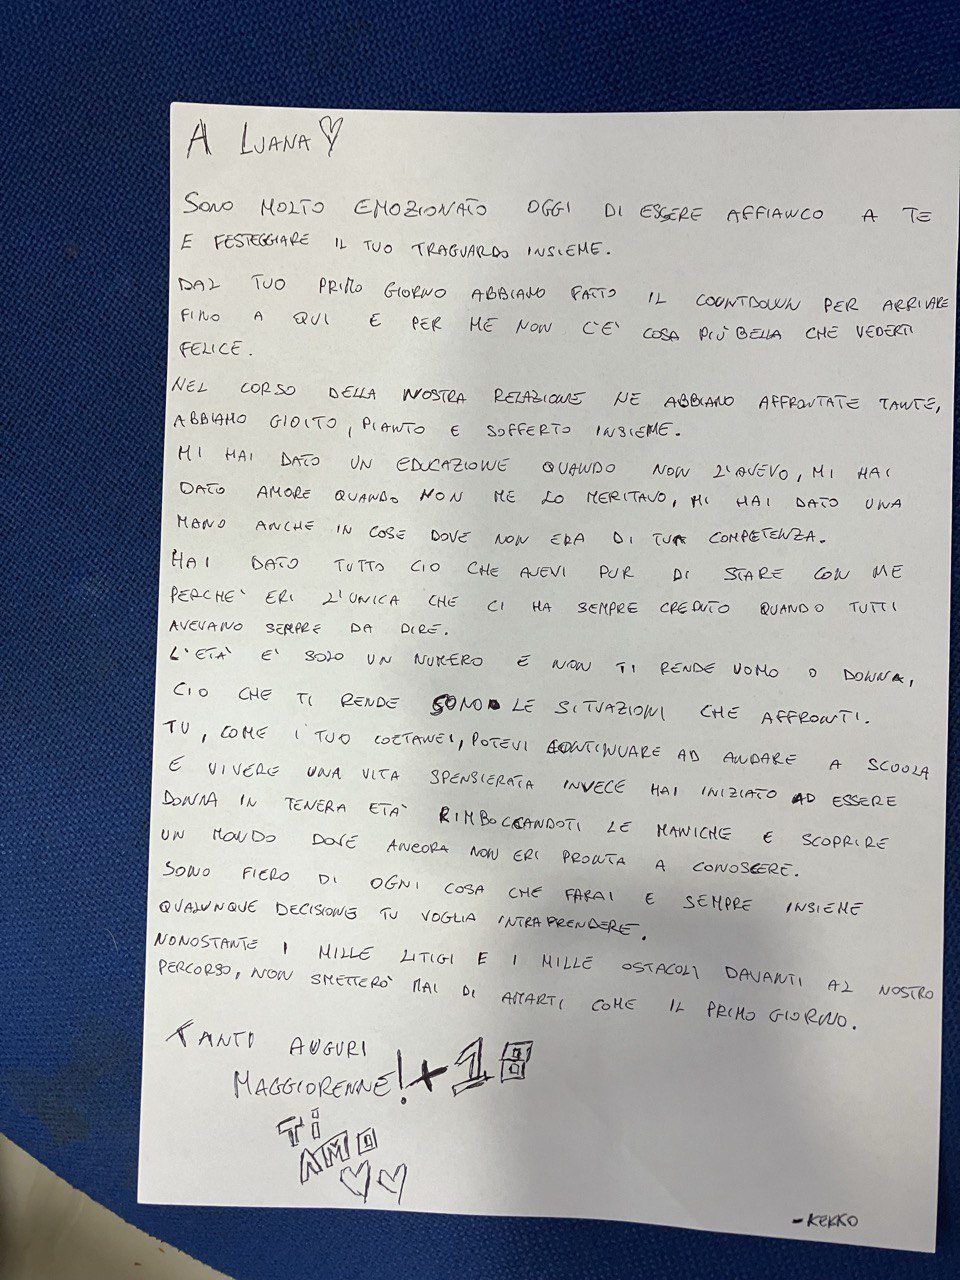 A LUANA
SONO MOLTO EMOZIONATO OGGI DI ESSERE AFFIANCO A TE
E FESTEGGIARE IL TUO TRAGUARDO INSIEME.
DAL TUO PRIMO GIORNO ABBIAMO FATTO IL COUNTDOWN PER ARRIVARE
FINO A QUI E PER ME NON C'E' COSA PIÙ BELLA CHE VEDERTI
FELICE.
NEL CORSO DELLA NOSTRA RELAZIONE NE ABBIAMO AFFRONTATE TANTE,
ABBIAMO GIOITO, PIANTO E SOFFERTO INSIEME.
MI HAI DATO UN EDUCAZIONE QUANDO NON L'AVEVO, MI HAI
DATO AMORE QUANDO NON ME LO MERITAVO, MI HAI DATO UNA
MANO ANCHE IN COSE DOVE NON ERA DI TUA COMPETENZA.
HAI DATO TUTTO CIO CHE AVEVI PUR DI STARE CON ME
PERCHE' ERI L'UNICA CHE CI HA SEMPRE CREDUTO QUANDO TUTTI
AVEVANO SEMPRE DA DIRE.
L'ETÀ E' SOLO UN NUMERO E NON TI RENDE UOMO O DONNA,
CIO CHE TI RENDE SONO LE SITUAZIONI CHE AFFRONTI.
TU, COME I TUO COETANEI, POTEVI CONTINUARE AD ANDARE A SCUOLA
E VIVERE UNA VITA SPENSIERATA INVECE HAI INIZIATO AD ESSERE
DONNA IN TENERA ETÀ RIMBOCCANDOTI LE MANICHE E SCOPRIRE
UN MONDO DOVE ANCORA NON ERI PRONTA A CONOSCERE.
SONO FIERO DI OGNI COSA CHE FARAI E SEMPRE INSIEME
QUALUNQUE DECISIONE TU VOGLIA INTRAPRENDERE.
NONOSTANTE I MILLE LITIGI E I MILLE OSTACOLI DAVANTI AL NOSTRO
PERCORSO, NON SMETTERO' MAI DI AMARTI COME IL PRIMO GIORNO.
TANTI AUGURI
MAGGIORENNE! +18
TI
AMO
-KEKKO